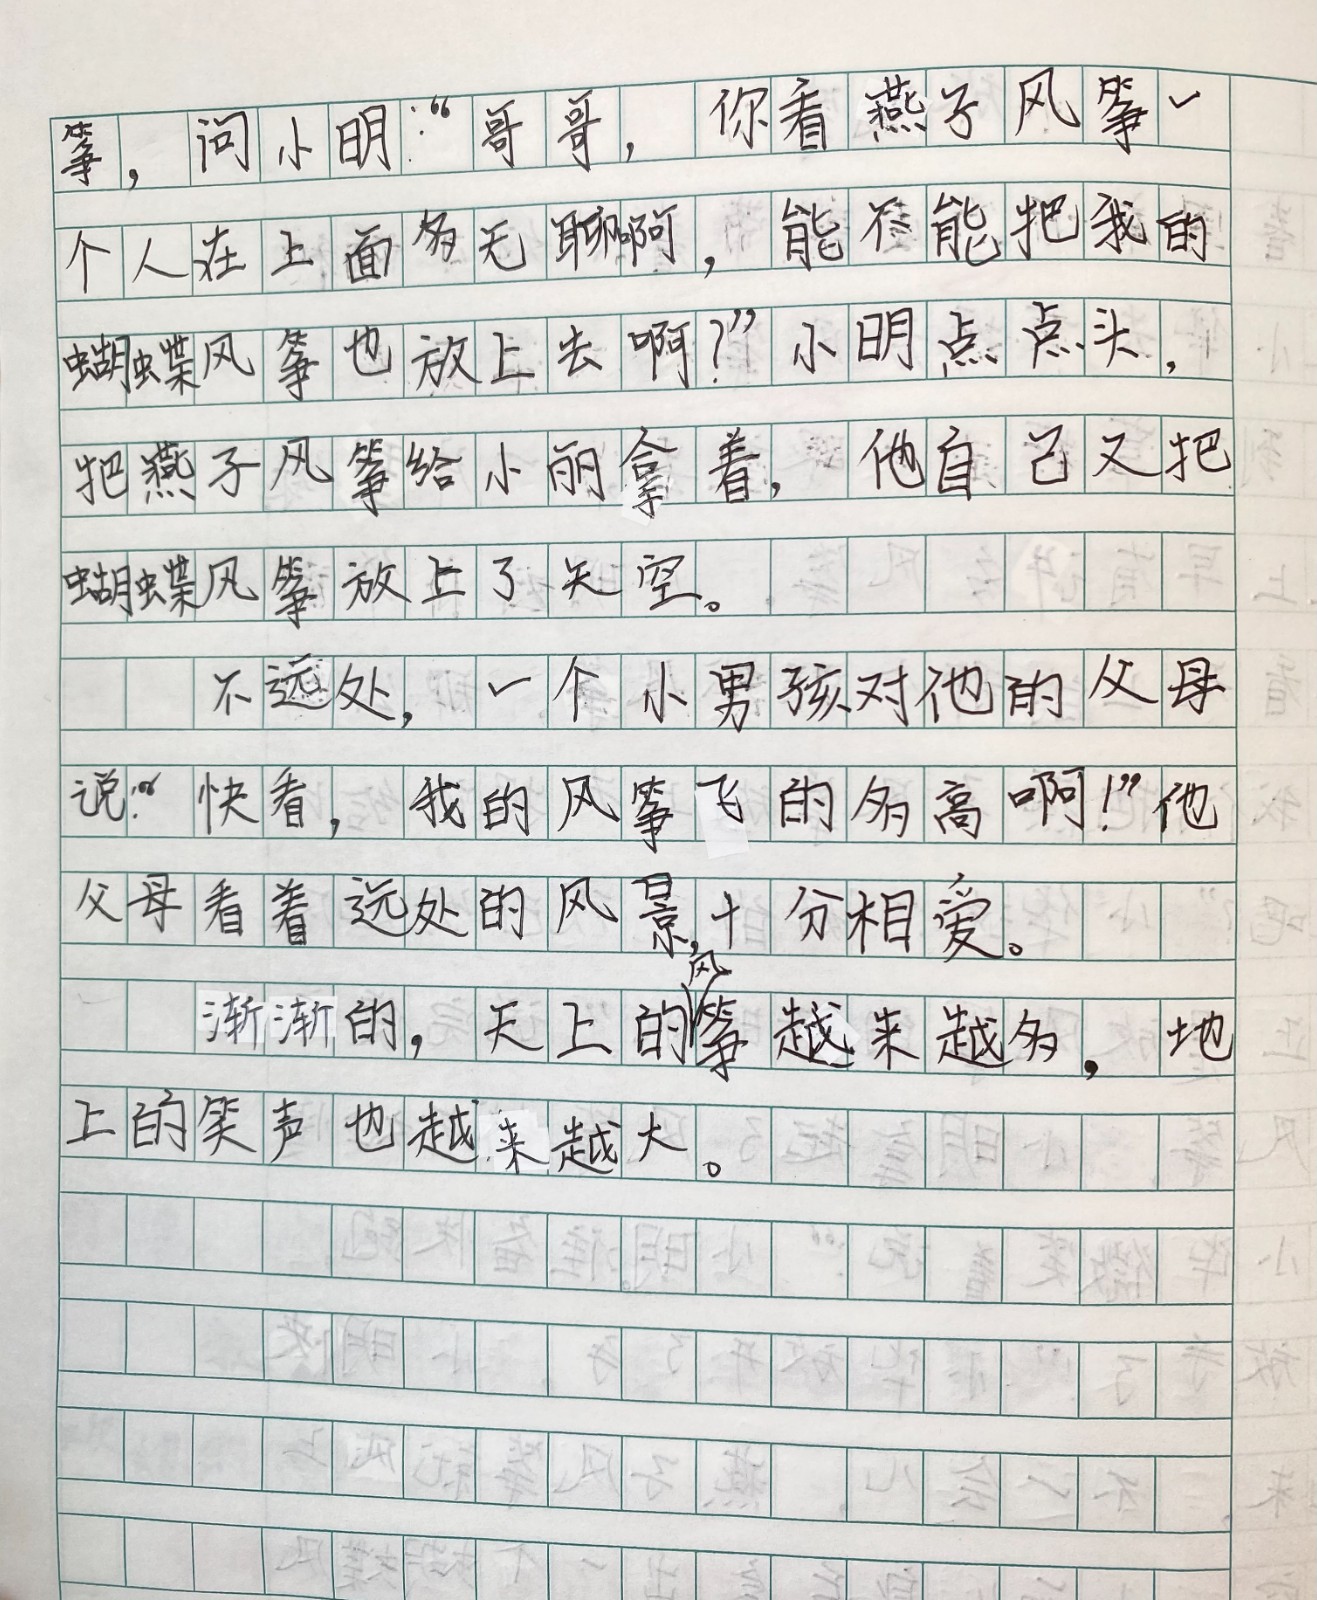 筝，问小明：“哥哥，你看燕子风筝一
个人在上面多无聊啊，能不能把我的
蝴蝶风筝也放上去啊？”小明点点头，
把燕子风筝给小丽拿着，他自己又把
蝴蝶风筝放上了天空。
不远处，一个小男孩对他的父母
说：“快看，我的风筝飞的多高啊！”他
父母看着远处的风景，十分相爱。
渐渐的，天上的风筝越来越多，地
上的笑声也越来越大。